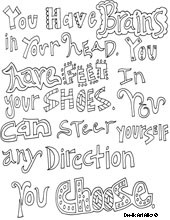 You Have Brains
in Your HEAD. You
have FEET In
your SHOES. You
CAN STEER YOURSELF
any Direction
you Choose.